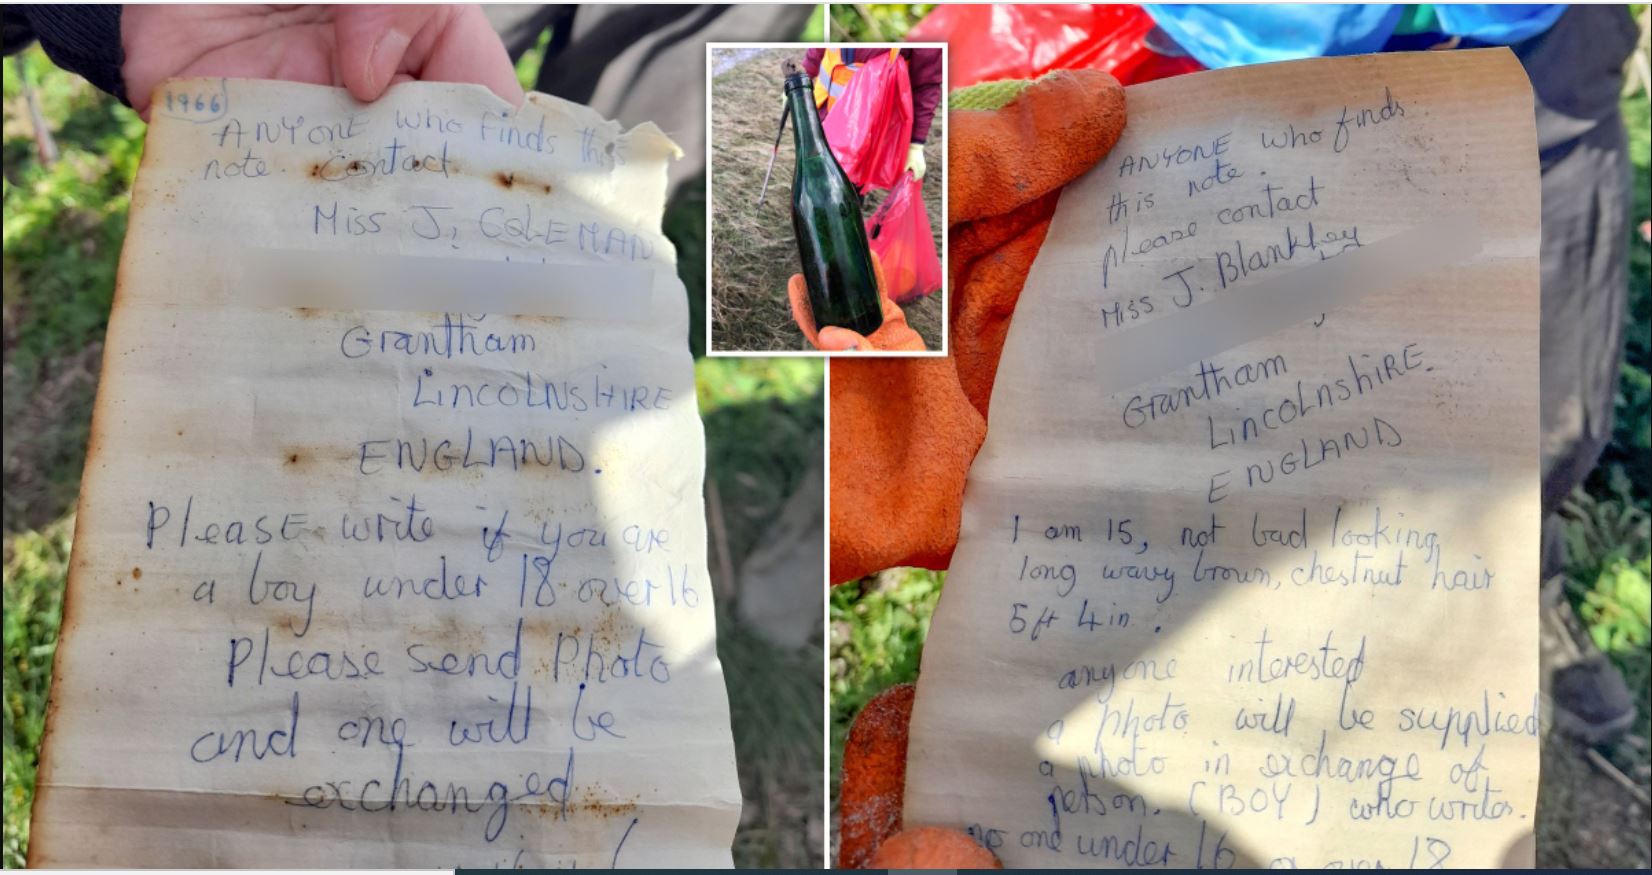 1966
ANYONE who finds this
note. Contact
Miss J. COLEMAN
Grantham
LINCOLNSHIRE
ENGLAND.
Please write if you are
a boy under 18 over 16
Please send Photo
and one will be
exchanged
ANYONE who finds
this note.
please contact
Miss J. Blankley
Grantham
LINCOLNSHIRE.
ENGLAND
I am 15, not bad looking,
long wavy brown, chestnut hair
5ft 4in.
anyone interested
a photo will be supplied
a photo in exchange of
person. (BOY) who writes.
no one under 16 or over 18